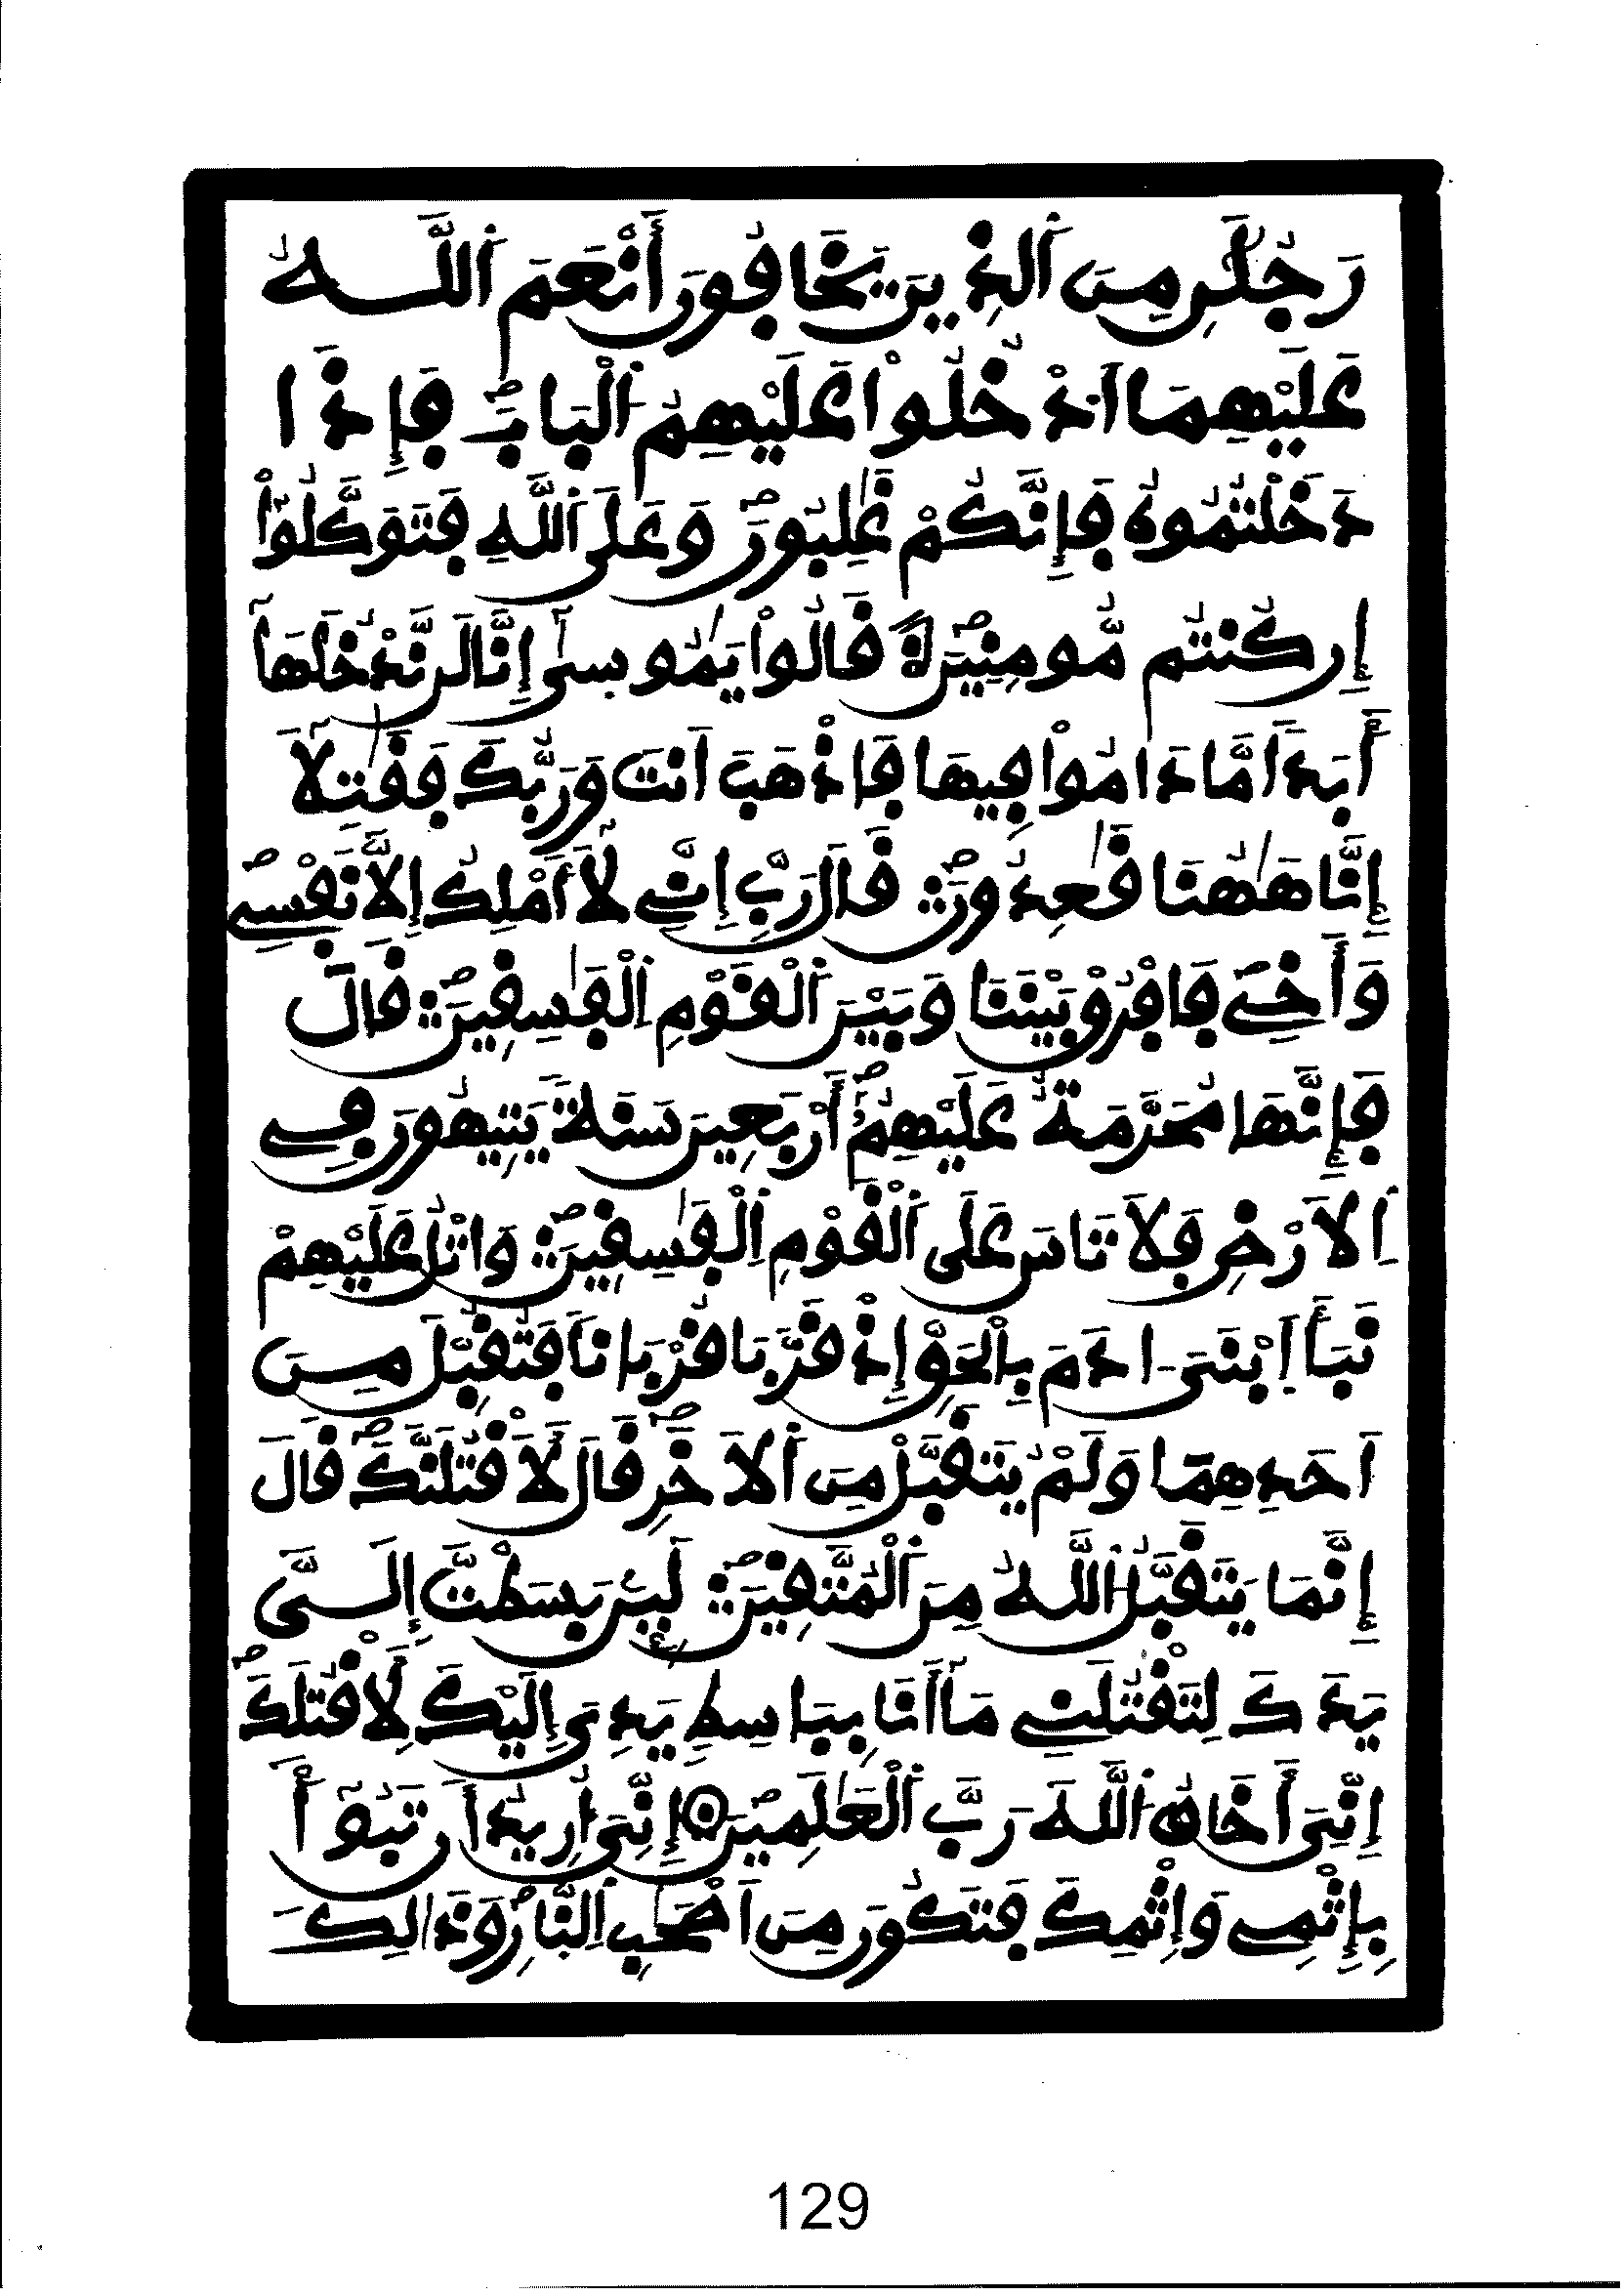 رَجُلَٰنِ مِنَ ٱلذِينَ يَخَافُونَ أَنْعَمَ ٱللَّهُ
عَلَيْهِمَا ٱدْخُلُواْ عَلَيْهِمُ ٱلْبَابَ فَإِذَا
دَخَلْتُمُوهُ فَإِنَّكُمْ غَٰلِبُونَ وَعَلَى ٱللَّهِ فَتَوَكَّلُوٓاْ
إِن كُنتُم مُّومِنِينَ قَالُواْ يَٰمُوسَىٰٓ إِنَّا لَن نَّدْخُلَهَآ
أَبَداٗ مَّا دَامُواْ فِيهَا فَاذْهَبَ اَنتَ وَرَبُّكَ فَقَٰتِلَآ
إِنَّا هَٰهُنَا قَٰعِدُونَ قَالَ رَبِّ إِنِّے لَآ أَمْلِكُ إِلَّا نَفْسِے
وَأَخِے فَافْرُقْ بَيْنَنَا وَبَيْنَ ٱلْقَوْمِ ٱلْفَٰسِقِينَ قَالَ
فَإِنَّهَا مُحَرَّمَةٌ عَلَيْهِمُۥٓ أَرْبَعِينَ سَنَةٗ يَتِيهُونَ فِے
ٱلَارْضِ فَلَا تَاسَ عَلَى ٱلْقَوْمِ ٱلْفَٰسِقِينَ وَاتْلُ عَلَيْهِمْ
نَبَأَ اَ۪بْنَىَ ادَمَ بِالْحَقِّ إِذْ قَرَّبَا قُرْبَاناٗ فَتُقُبِّلَ مِنَ
اَحَدِهِمَا وَلَمْ يُتَقَبَّلْ مِنَ ٱلَاخَرِ قَالَ لَأَقْتُلَنَّكَ قَالَ
إِنَّمَا يَتَقَبَّلُ ٱللَّهُ مِنَ ٱلْمُتَّقِينَ لَئِنۢ بَسَطتَّ إِلَىَّ
يَدَكَ لِتَقْتُلَنِے مَآ أَنَا بِبَاسِطٖ يَدِىَ إِلَيْكَ لَأَقْتُلَكَ
إِنِّىَ أَخَافُ ٱللَّهَ رَبَّ ٱلْعَٰلَمِينَ إِنِّىَ أُرِيدُ أَن تَبُوٓأَ
بِإِثْمِے وَإِثْمِكَ فَتَكُونَ مِنَ اَصْحَٰبِ ٱلنَّارِ وَذَٰلِكَ
129